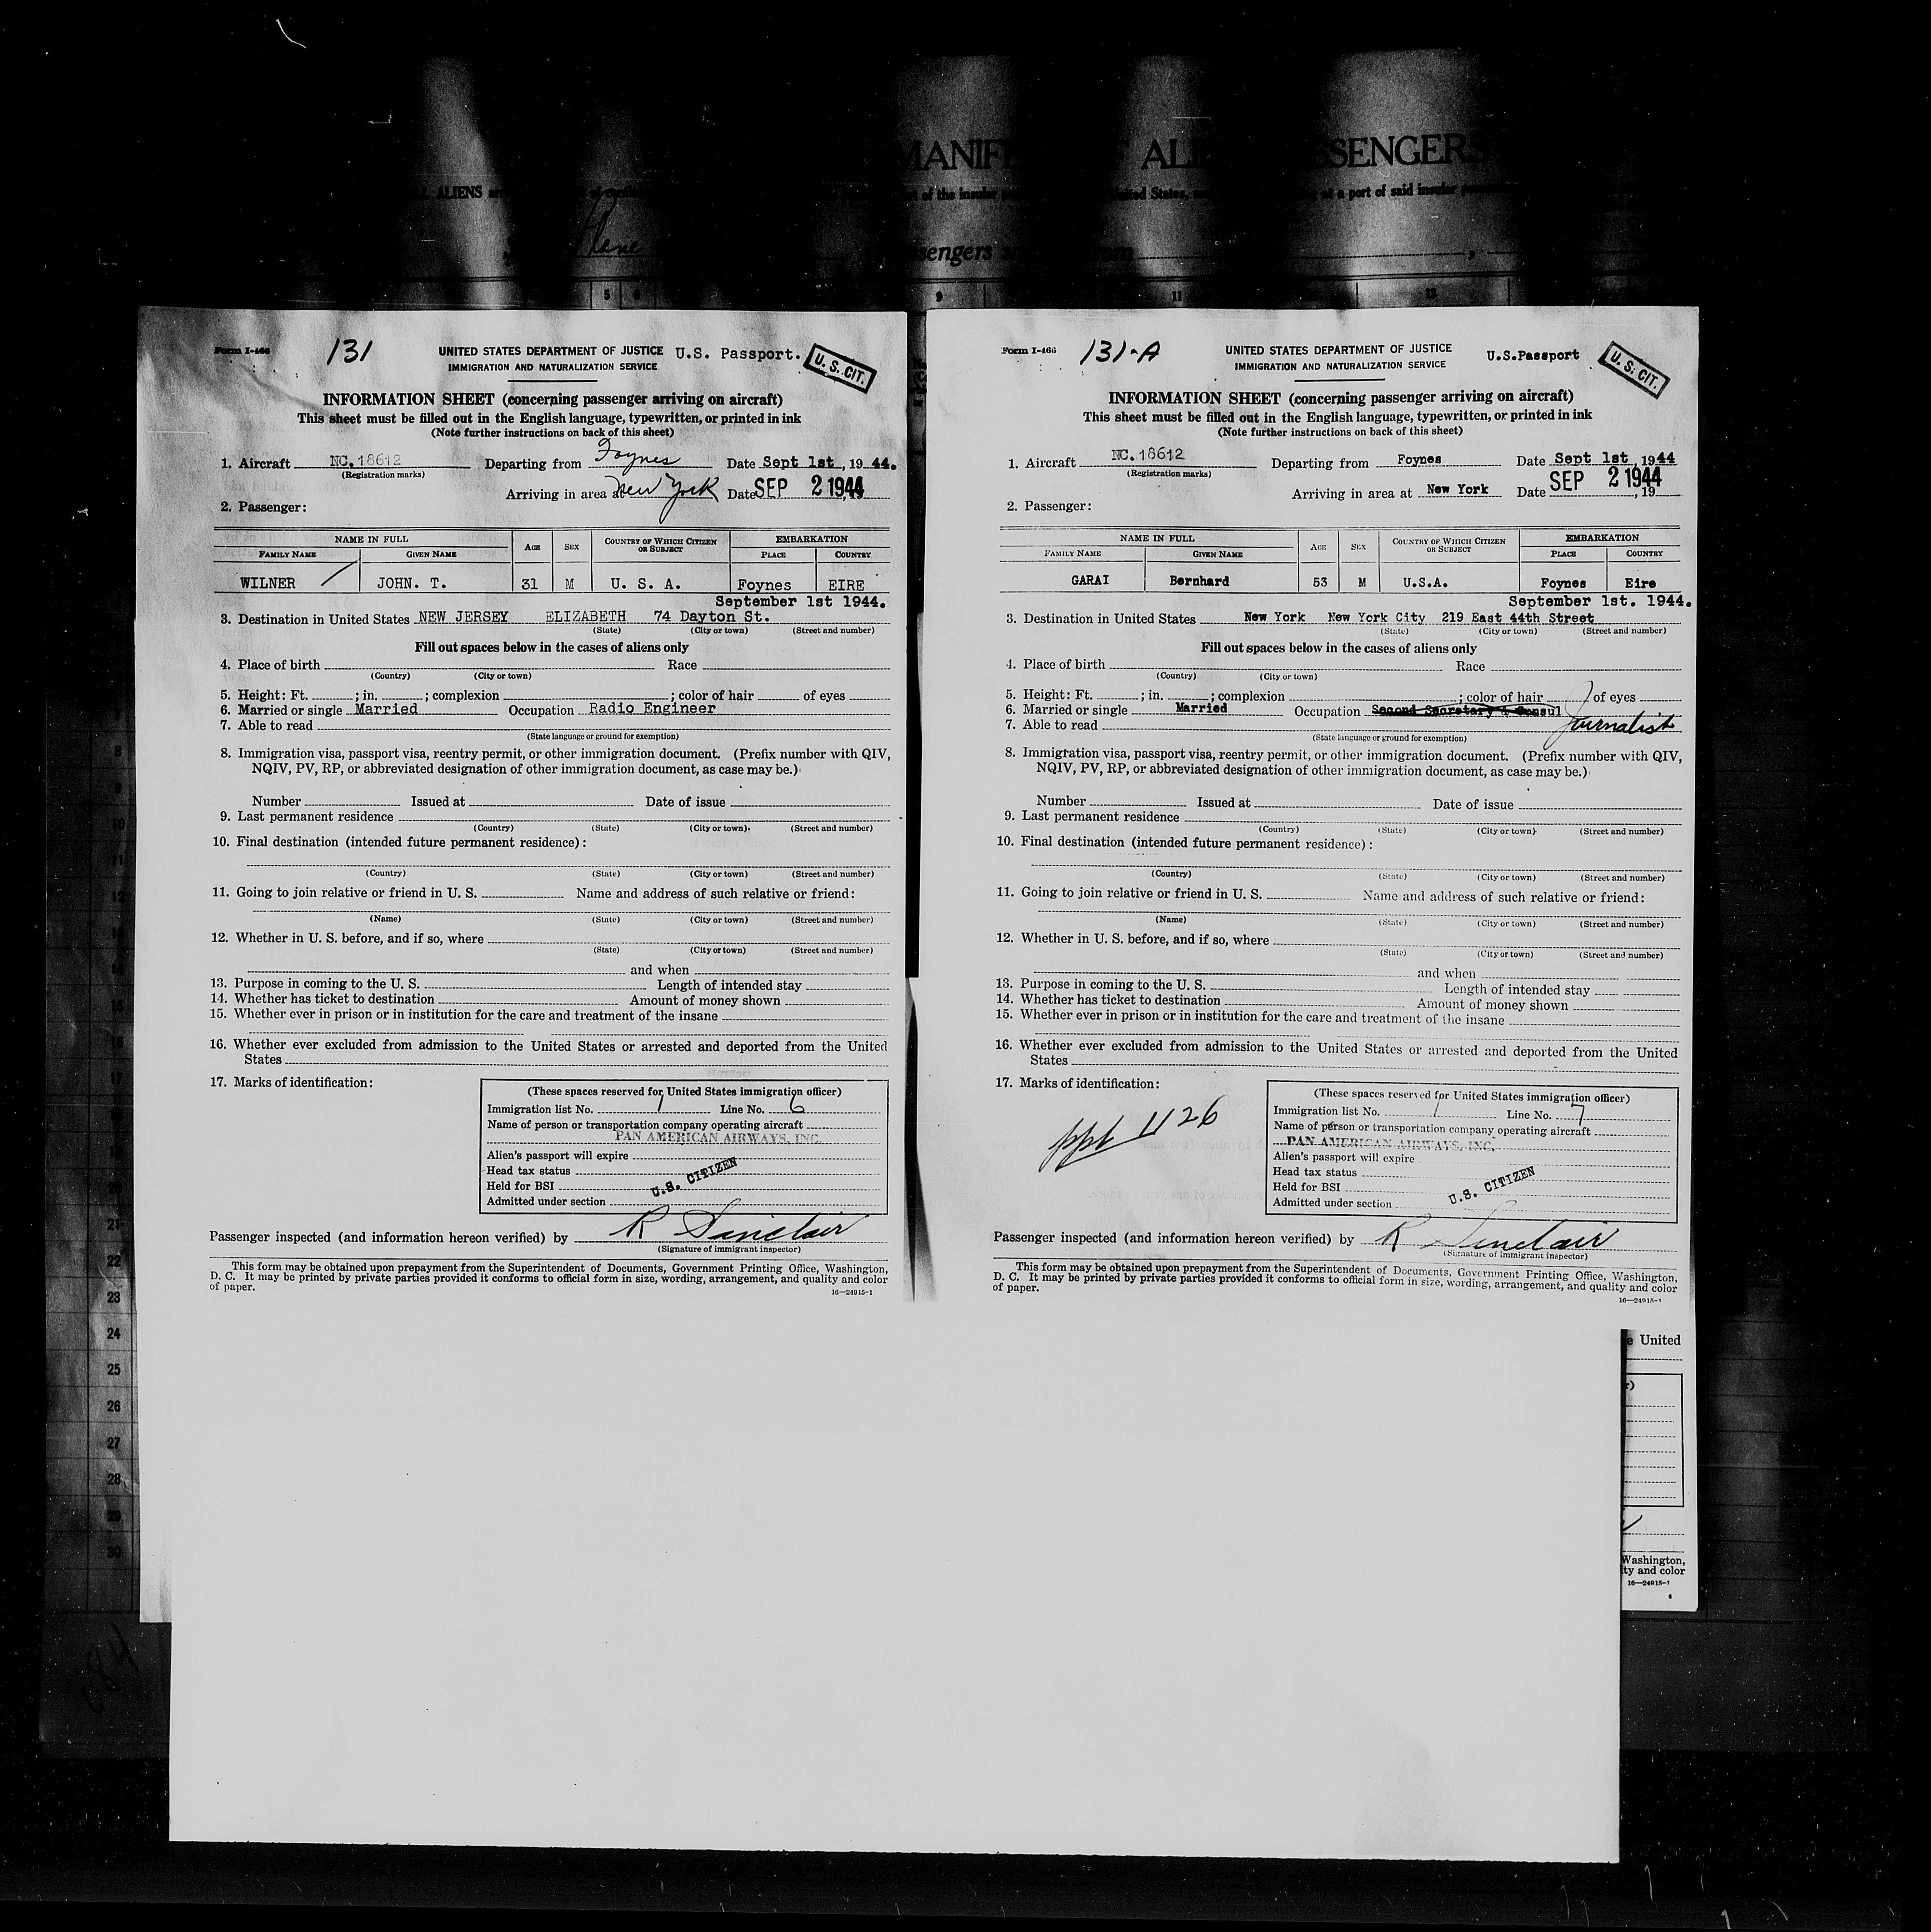 MANIF F AL SSENGERS
ALIENS
of the insular
ited States,
at a port of said insular
Plane
sengers
5 6 9 11 13
Form I-466
131
UNITED STATES DEPARTMENT OF JUSTICE
U.S. Passport.
U. S. CIT.
IMMIGRATION AND NATURALIZATION SERVICE
INFORMATION SHEET (concerning passenger arriving on aircraft)
This sheet must be filled out in the English language, typewritten, or printed in ink
(Note further instructions on back of this sheet)
1. Aircraft NC.18612 Departing from Foynes Date Sept 1st, 19 44.
(Registration marks)
Arriving in area at New York Date SEP 2 1944
2. Passenger:
NAME IN FULL AGE SEX COUNTRY OF WHICH CITIZEN OR SUBJECT EMBARKATION
FAMILY NAME GIVEN NAME PLACE COUNTRY
WILNER JOHN. T. 31 M U. S. A. Foynes EIRE
September 1st 1944.
3. Destination in United States NEW JERSEY ELIZABETH 74 Dayton St.
(State) (City or town) (Street and number)
Fill out spaces below in the cases of aliens only
4. Place of birth Race
(Country) (City or town)
5. Height: Ft. ; in. ; complexion ; color of hair of eyes
6. Married or single Married Occupation Radio Engineer
7. Able to read
(State language or ground for exemption)
8. Immigration visa, passport visa, reentry permit, or other immigration document. (Prefix number with QIV,
NQIV, PV, RP, or abbreviated designation of other immigration document, as case may be.)
Number Issued at Date of issue
9. Last permanent residence
(Country) (State) (City or town) (Street and number)
10. Final destination (intended future permanent residence):
(Country) (State) (City or town) (Street and number)
11. Going to join relative or friend in U. S. Name and address of such relative or friend:
(Name) (State) (City or town) (Street and number)
12. Whether in U. S. before, and if so, where
(State) (City or town) (Street and number)
and when
13. Purpose in coming to the U. S. Length of intended stay
14. Whether has ticket to destination Amount of money shown
15. Whether ever in prison or in institution for the care and treatment of the insane
16. Whether ever excluded from admission to the United States or arrested and deported from the United
States
17. Marks of identification:
(These spaces reserved for United States immigration officer)
Immigration list No. 1 Line No. 6
Name of person or transportation company operating aircraft
PAN AMERICAN AIRWAYS, INC.
Alien's passport will expire
Head tax status
Held for BSI
U.S. CITIZEN
Admitted under section
Passenger inspected (and information hereon verified) by R Sinclair
(Signature of immigrant inspector)
This form may be obtained upon prepayment from the Superintendent of Documents, Government Printing Office, Washington,
D. C. It may be printed by private parties provided it conforms to official form in size, wording, arrangement, and quality and color
of paper.
16—24915-1
Form I-466
131-A
UNITED STATES DEPARTMENT OF JUSTICE
U.S.Passport
U. S. CIT.
IMMIGRATION AND NATURALIZATION SERVICE
INFORMATION SHEET (concerning passenger arriving on aircraft)
This sheet must be filled out in the English language, typewritten, or printed in ink
(Note further instructions on back of this sheet)
1. Aircraft NC.18612 Departing from Foynes Date Sept 1st, 1944
(Registration marks)
Arriving in area at New York Date SEP 2 1944, 19
2. Passenger:
NAME IN FULL AGE SEX COUNTRY OF WHICH CITIZEN OR SUBJECT EMBARKATION
FAMILY NAME GIVEN NAME PLACE COUNTRY
GARAI Bernhard 53 M U.S.A. Foynes Eire
September 1st. 1944.
3. Destination in United States New York New York City 219 East 44th Street
(State) (City or town) (Street and number)
Fill out spaces below in the cases of aliens only
4. Place of birth Race
(Country) (City or town)
5. Height: Ft. ; in. ; complexion ; color of hair of eyes
6. Married or single Married Occupation Second Secretary & Consul Journalist
7. Able to read
(State language or ground for exemption)
8. Immigration visa, passport visa, reentry permit, or other immigration document. (Prefix number with QIV,
NQIV, PV, RP, or abbreviated designation of other immigration document, as case may be.)
Number Issued at Date of issue
9. Last permanent residence
(Country) (State) (City or town) (Street and number)
10. Final destination (intended future permanent residence):
(Country) (State) (City or town) (Street and number)
11. Going to join relative or friend in U. S. Name and address of such relative or friend:
(Name) (State) (City or town) (Street and number)
12. Whether in U. S. before, and if so, where
(State) (City or town) (Street and number)
and when
13. Purpose in coming to the U. S. Length of intended stay
14. Whether has ticket to destination Amount of money shown
15. Whether ever in prison or in institution for the care and treatment of the insane
16. Whether ever excluded from admission to the United States or arrested and deported from the United
States
17. Marks of identification:
ppt 1126
(These spaces reserved for United States immigration officer)
Immigration list No. 1 Line No. 7
Name of person or transportation company operating aircraft
PAN AMERICAN AIRWAYS, INC.
Alien's passport will expire
Head tax status
Held for BSI
U.S. CITIZEN
Admitted under section
Passenger inspected (and information hereon verified) by R Sinclair
(Signature of immigrant inspector)
This form may be obtained upon prepayment from the Superintendent of Documents, Government Printing Office, Washington,
D. C. It may be printed by private parties provided it conforms to official form in size, wording, arrangement, and quality and color
of paper.
16—24915-1
e United
r)
Washington,
ty and color
16—24915-1
8
9
10
11
12
14
15
16
17
21
22
23
24
25
26
27
28
29
30